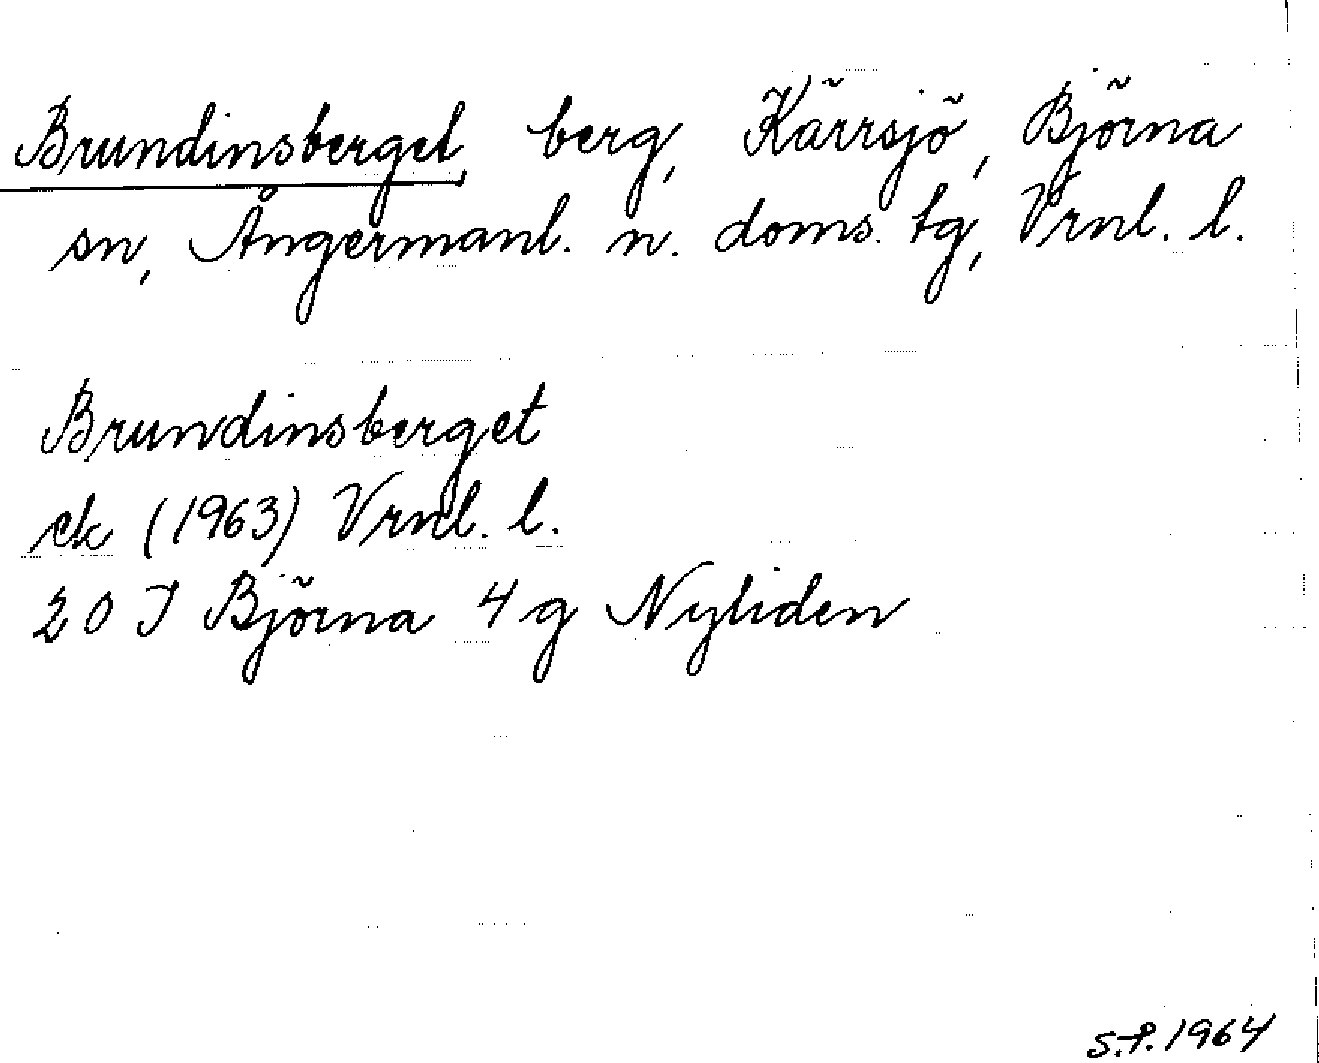 Brundinsberget, berg, Kärrsjö, Björna
sn, Ångermanl. n. doms. tg, Vrnl. l.
Brundinsberget
ek (1963) Vrnl. l.
20 J Björna 4 g Nyliden
S.f. 1964